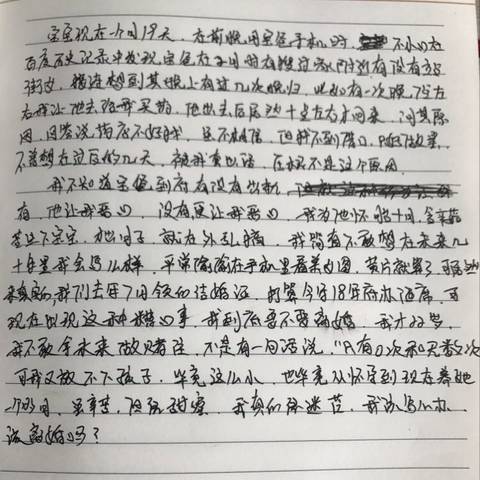 宝宝现在一个月19天，在前晚用宝爸手机时，不小心在
百度历史记录中发现宝爸在2月时有搜过家附近有没有站
街女，猜往想到某晚上有过几次晚归，比如有一次晚了9左
右我让他去给我买药，他出去后居然十点左右才回来，问其原
因，回答说药店不好找，虽不相信，但找不到借口，只能放弃，
不曾想在过后的几天，被我套出话，压根不是这个原因
我不知道宝爸到底有没有出轨，
有，他让我恶心，没有更让我恶心，我为他怀胎十月，含辛茹
苦生下宝宝，他因子，就在外乱搞，我简直不敢想在未来几
十年里我会怎么样，平常偷偷在手机里看美女图，黄片就算了，可
来真实的，我们去年7月领的结婚证，打算今年18年底办酒席，可
现在出现这种糟心事，我到底要不要离婚，我才22岁，
我不敢拿未来做赌注，不是有一句话说，"只有0次和无数次"
可我又放不下孩子，毕竟这么小，也毕竟从怀孕到现在养她
一个多月，虽辛苦，但很甜蜜，我真的很迷茫，我该怎么办，
该离婚吗？